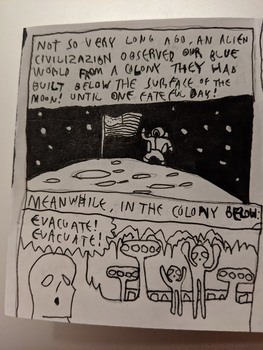 NOT SO VERY LONG AGO, AN ALIEN
CIVILIZAZION OBSERVED OUR BLUE
WORLD FROM A COLONY THEY HAD
BUILT BELOW THE SURFACE OF THE
MOON! UNTIL ONE FATEFUL DAY!
MEANWHILE, IN THE COLONY BELOW:
EVACUATE!
EVACUATE!